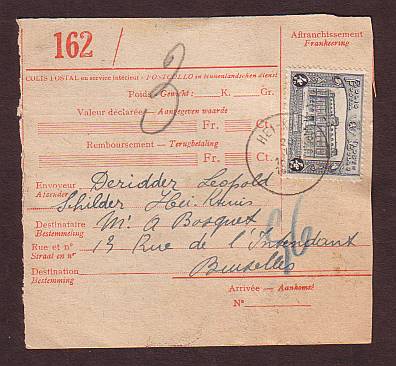 162 /
Affranchissement
Frankeering
COLIS POSTAL en service intérieur - POSTCOLLO in binnenlandschen dienst
Poids - Gewicht : K. Gr.
3
Valeur déclarée - Aangegeven waarde
Fr. Ct.
Remboursement — Terugbetaling
Fr. Ct.
Envoyeur Deridder Leopold
Afzender Schilder Hei-
Destinataire Mr A Bosquet
Bestemming
Rue et n° 13 Rue de l'Intendant
Straat en n°
Destination Bruxelles
Bestemming
Arrivée — Aankomst
N°